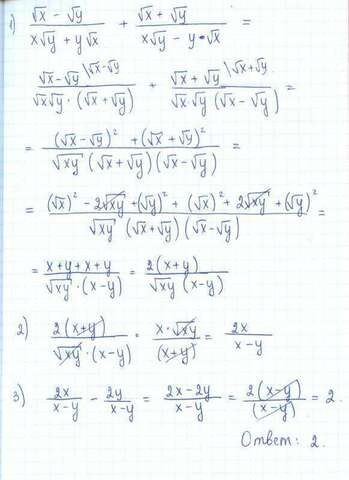 1) (√x − √y)/(x√y + y√x) + (√x + √y)/(x√y − y·√x) =
(√x − √y \√x−√y)/(√x√y · (√x + √y)) + (√x + √y \√x+√y)/(√x·√y (√x − √y)) =
= ((√x − √y)² + (√x + √y)²)/(√xy (√x + √y)(√x − √y)) =
= ((√x)² − 2√xy + (√y)² + (√x)² + 2√xy + (√y)²)/(√xy (√x + √y)(√x − √y)) =
= (x + y + x + y)/(√xy · (x − y)) = 2(x + y)/(√xy (x − y))
2) 2(x + y)/(√xy · (x − y)) · x·√xy/(x + y) = 2x/(x − y)
3) 2x/(x − y) − 2y/(x − y) = (2x − 2y)/(x − y) = 2(x − y)/(x − y) = 2.
Ответ: 2.